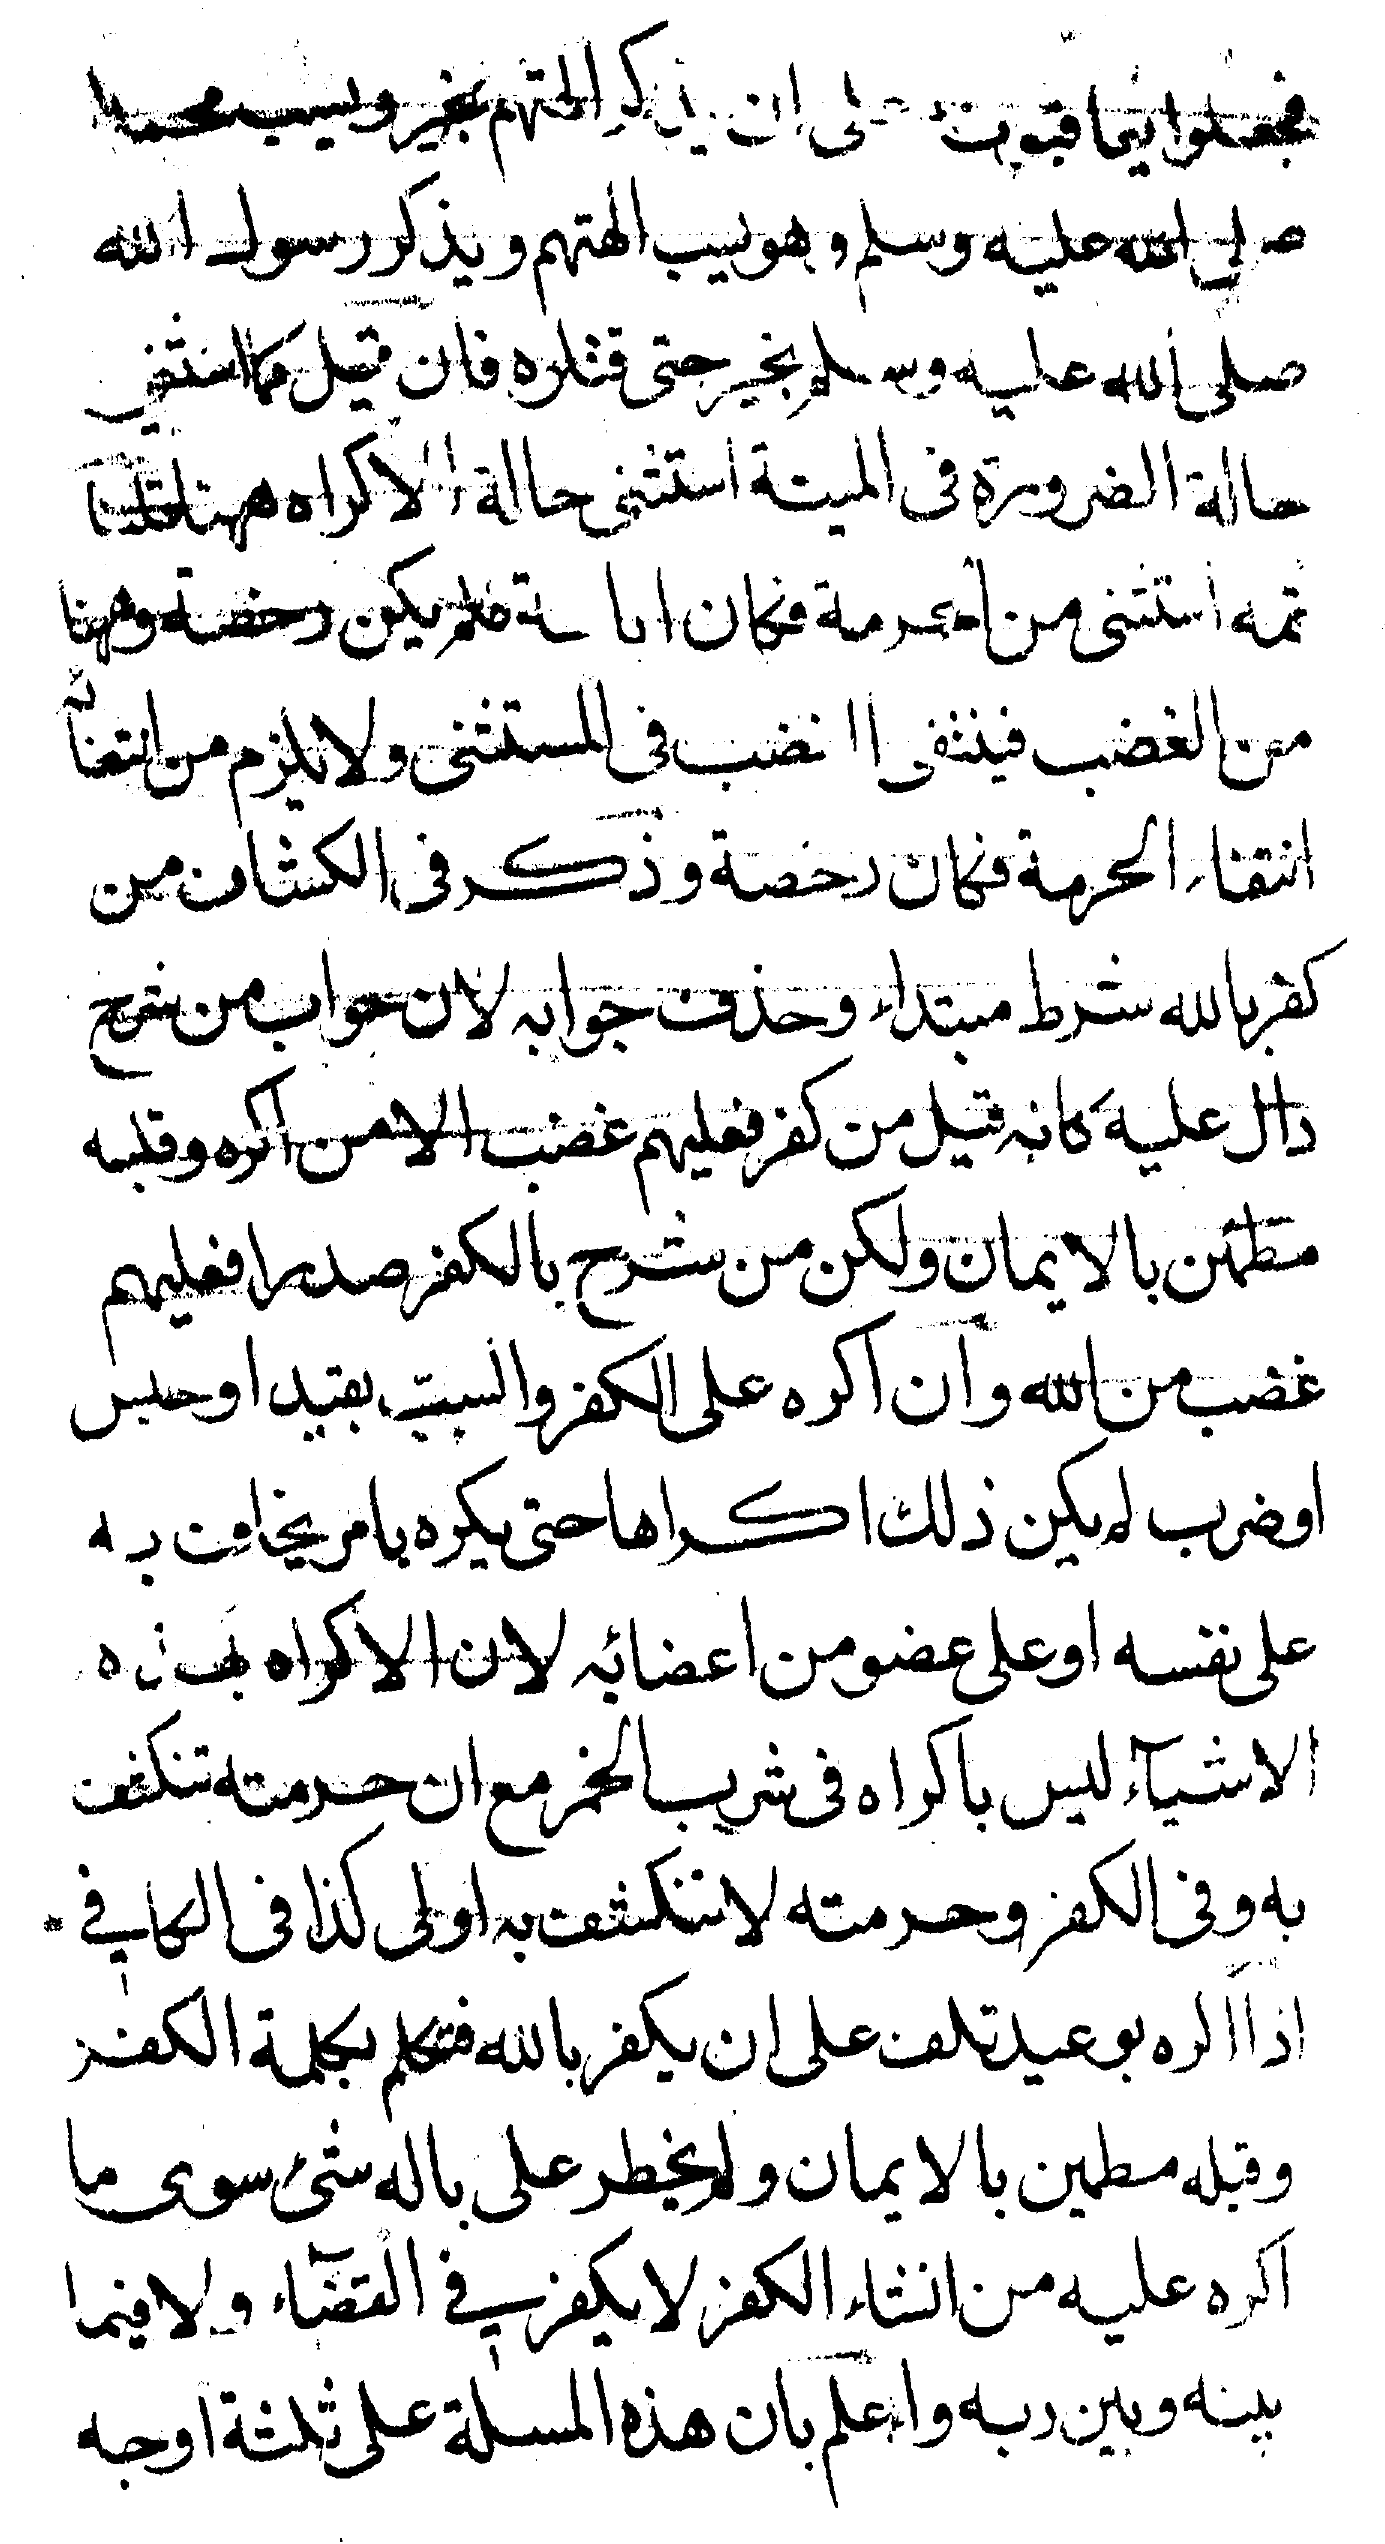 فجعلوا يعاقبونه على ان يذكر الهتهم بخير ويسب محمدا
صلى الله عليه وسلم وهو يسب الهتهم ويذكر رسول الله
صلى الله عليه وسلم بخير حتى قتلوه فان قيل كما استثنى
حالة الضرورة في الميتة استثنى حالة الاكراه ههنا قلنا
ثمه استثنى من الحرمة فكان اباحة فلم يكن رخصة وههنا
من الغضب فينتفى الغضب في المستثنى ولا يلزم من انتفائه
انتفاء الحرمة فكان رخصة وذكر في الكشاف من
كفر بالله شرط مبتداء وحذف جوابه لان جواب من شرح
دال عليه كانه قيل من كفر فعليهم غضب الا من اكره وقلبه
مطمئن بالايمان ولكن من شرح بالكفر صدرا فعليهم
غضب من الله وان اكره على الكفر والسب بقيد او حبس
او ضرب لم يكن ذلك اكراها حتى يكره بامر يخاف به
على نفسه او على عضو من اعضائه لان الاكراه بهذه
الاشياء ليس باكراه في شرب الخمر مع ان حرمته تنكشف
به وفي الكفر وحرمته لا تنكشف به اولى كذا في الكافي
اذا اكره بوعيد تلف على ان يكفر بالله فتكلم بكلمة الكفر
وقبله مطمين بالايمان ولم يخطر على باله شئ سوى ما
اكره عليه من انشاء الكفر لا يكفر في القضاء ولا فيما
بينه وبين ربه واعلم بان هذه المسلة على ثلثة اوجه